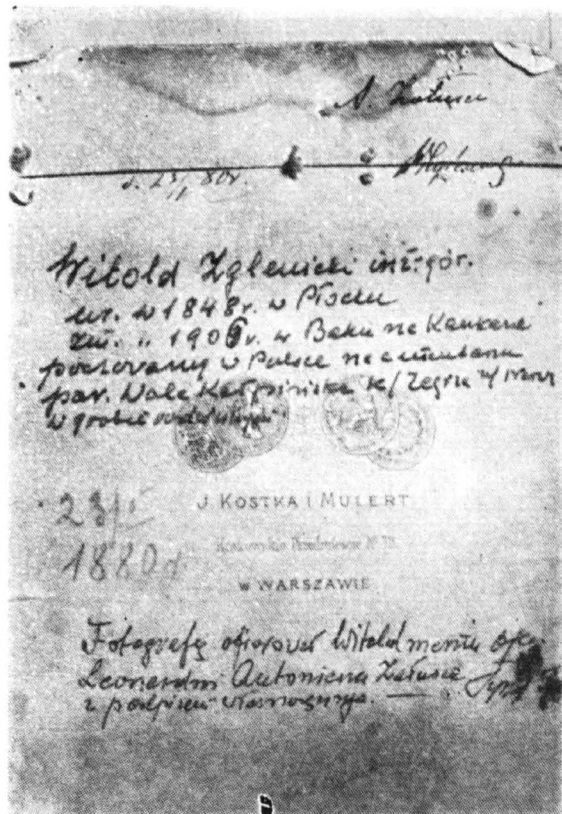 A. Załusce
d. 23/II 80r.
Witold Zglenicki inż. gór.
ur. w 1848r. w Płocku
zm. w 1906r. w Baku na Kaukazie
pochowany w Polsce na cmentarzu
par. Wola Kiełpińska k/Zegrza
w grobie rodzinnym
J. KOSTKA I MULERT
Krakowskie Przedmieście Nº
W WARSZAWIE
23/II
1880 r
Fotografię ofiarował Witold memu ojcu
Leonardowi Antoniemu Załusce
z podpisem własnoręcznym.